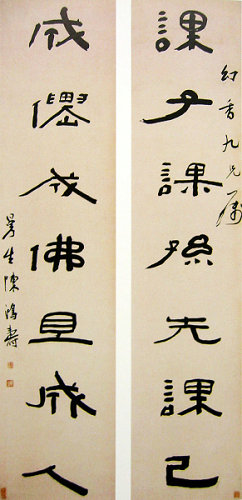 課子課孫先課己
幻香九兄屬
成僊成佛且成人
曼生陳鴻壽